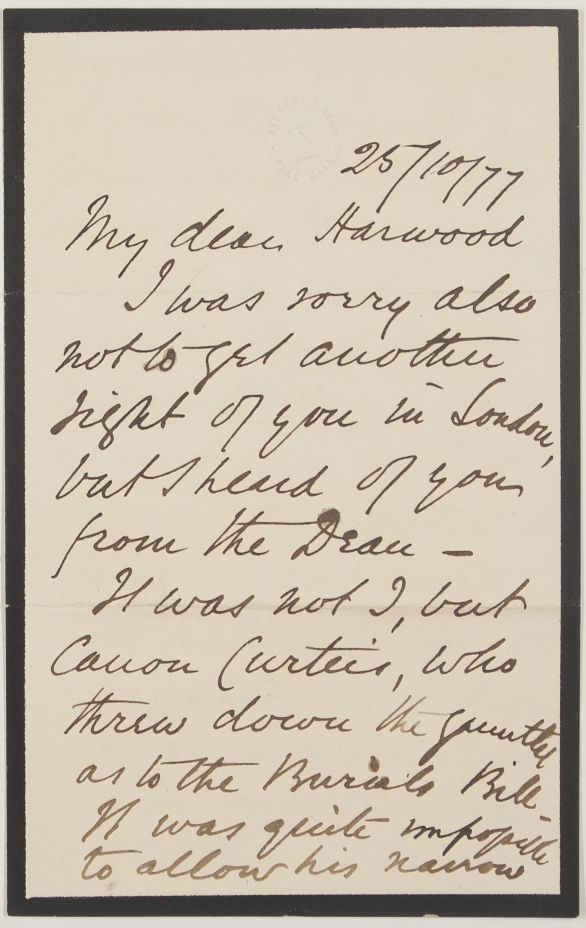 ATHENÆUM CLUB
PALL MALL
25/10/77
My dear Harwood
I was sorry also
not to get another
sight of you in London,
but I heard of you
from the Dean —
It was not I, but
Canon Curteis, who
threw down the gauntlet
as to the Burials Bill
It was quite impossible
to allow his narrow